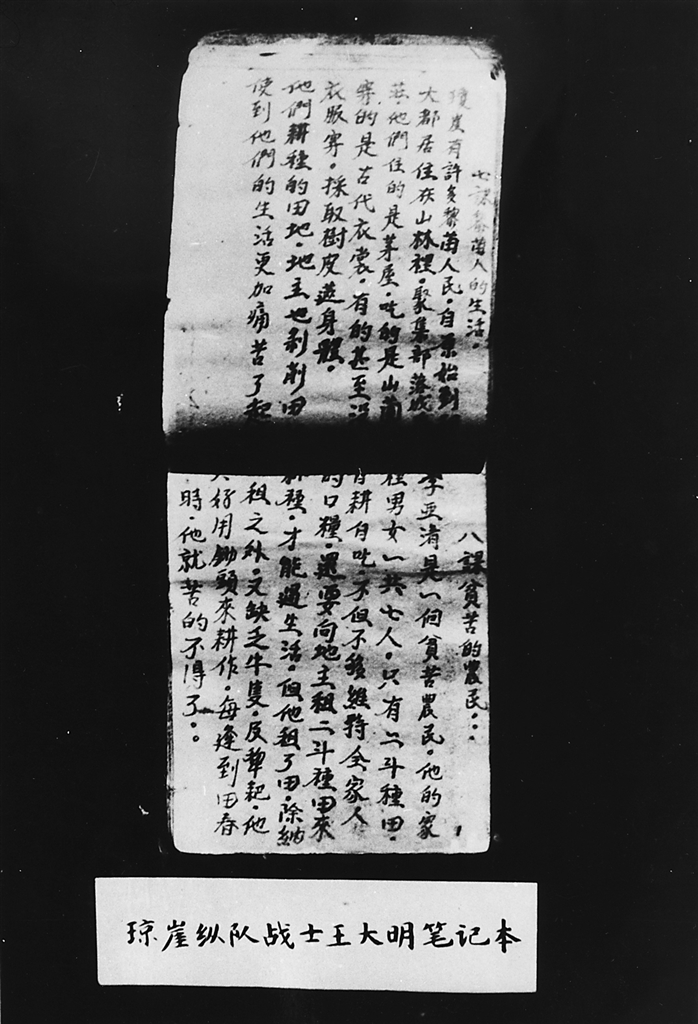 七課黎苗人的生活
琼崖有許多黎苗人民。自原始到
大都居住在山林裡。聚集部落成
莊。他們住的是茅屋。吃的是山薯
穿的是古代衣裳。有的甚至沒
衣服穿。採取樹皮遮身體。
他們耕種的田地。地主也剥削田
使到他們的生活更加痛苦了起
八課貧苦的農民...
李亚清是一個貧苦農民。他的家
裡男女一共七人。只有六斗種田。
自耕自吃。不但不够維持全家人
的口糧。還要向地主租二斗種田來
耕種。才能過生活。但他租了田。除納
租之外。又缺乏牛隻。及犂耙。他
只好用鋤頭來耕作。每逢到田春
時。他就苦的不得了。。
琼崖纵队战士王大明笔记本